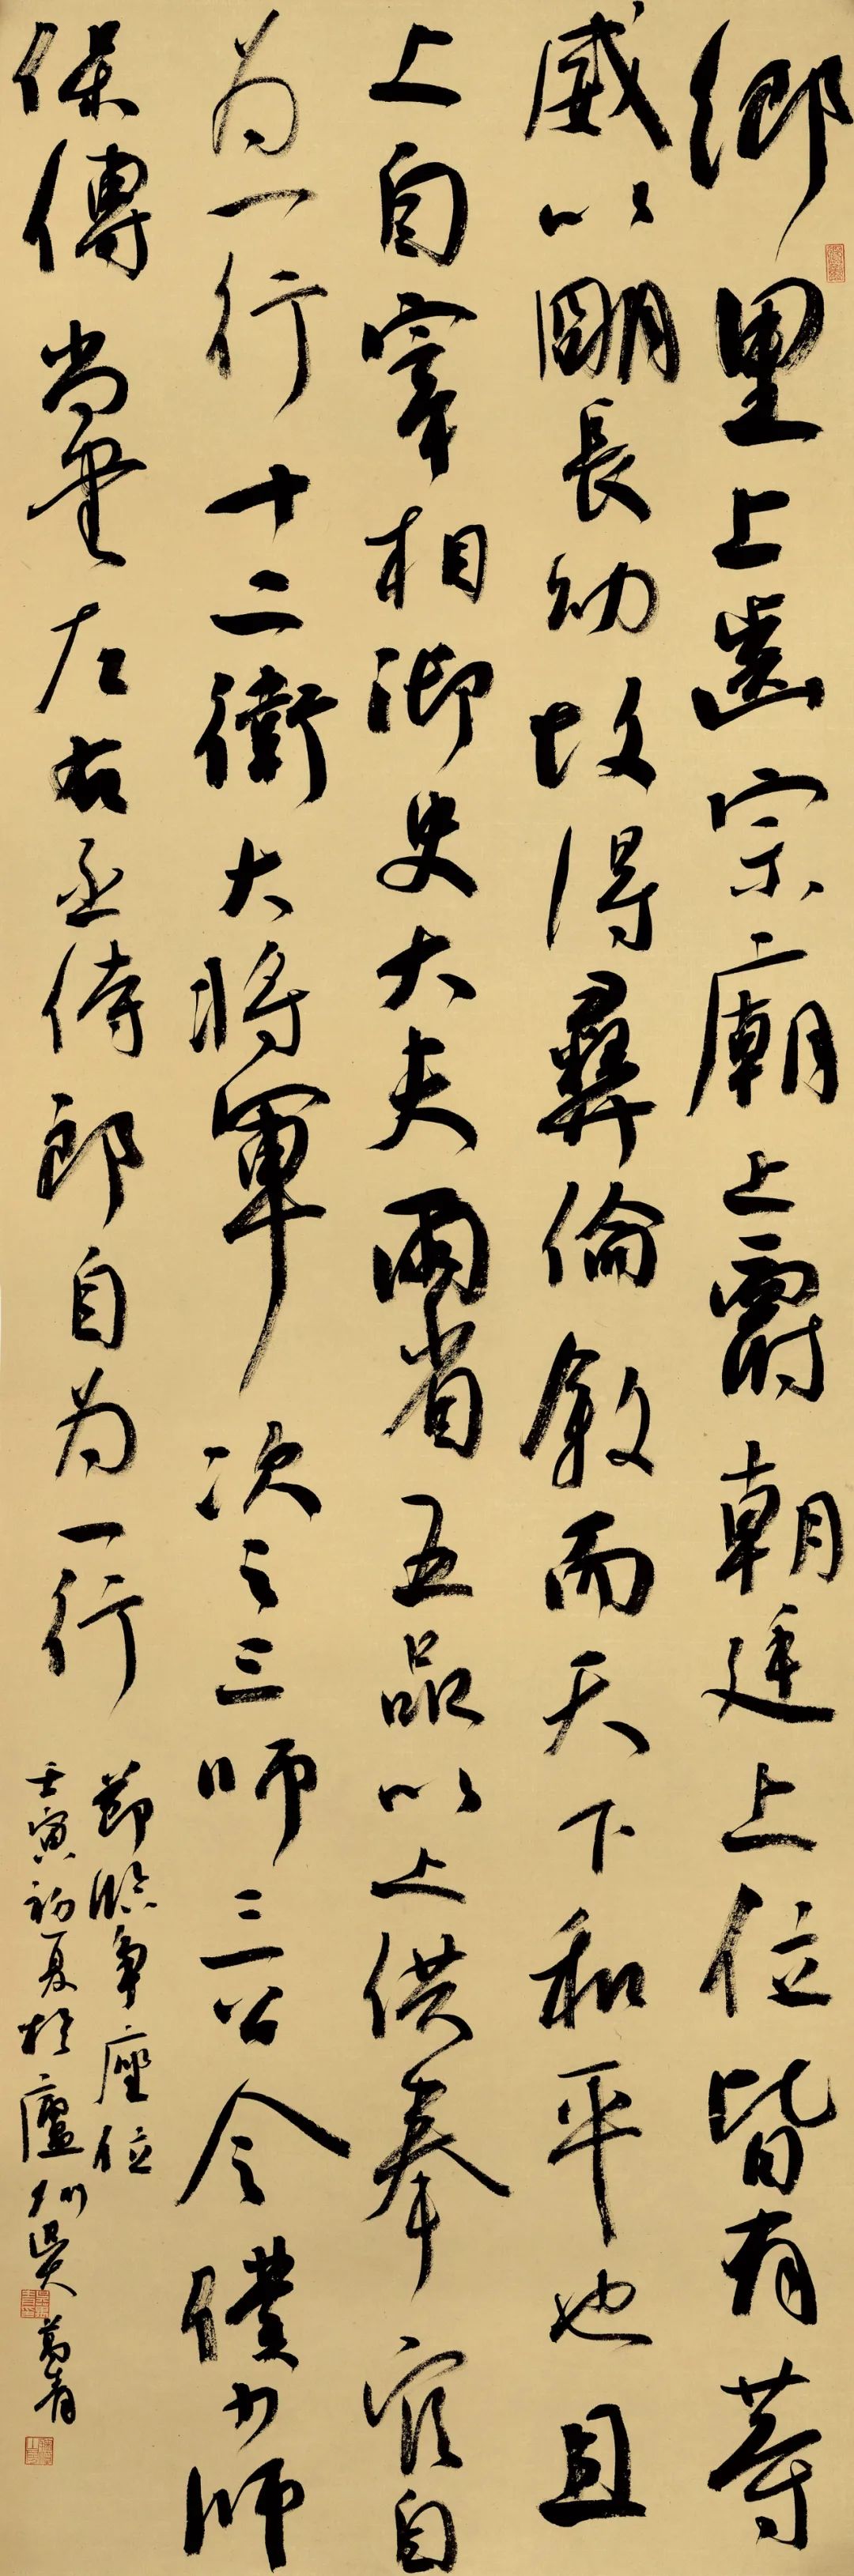 鄉里上齒宗廟上爵朝廷上位皆有等
威以明長幼故得彝倫敘而天下和平也且
上自宰相御史大夫兩省五品以上供奉官自
為一行十二衛大將軍次之三師三公令僕少師
保傅尚書左右丞侍郎自為一行
節臨爭座位
壬寅初夏於廬州吳